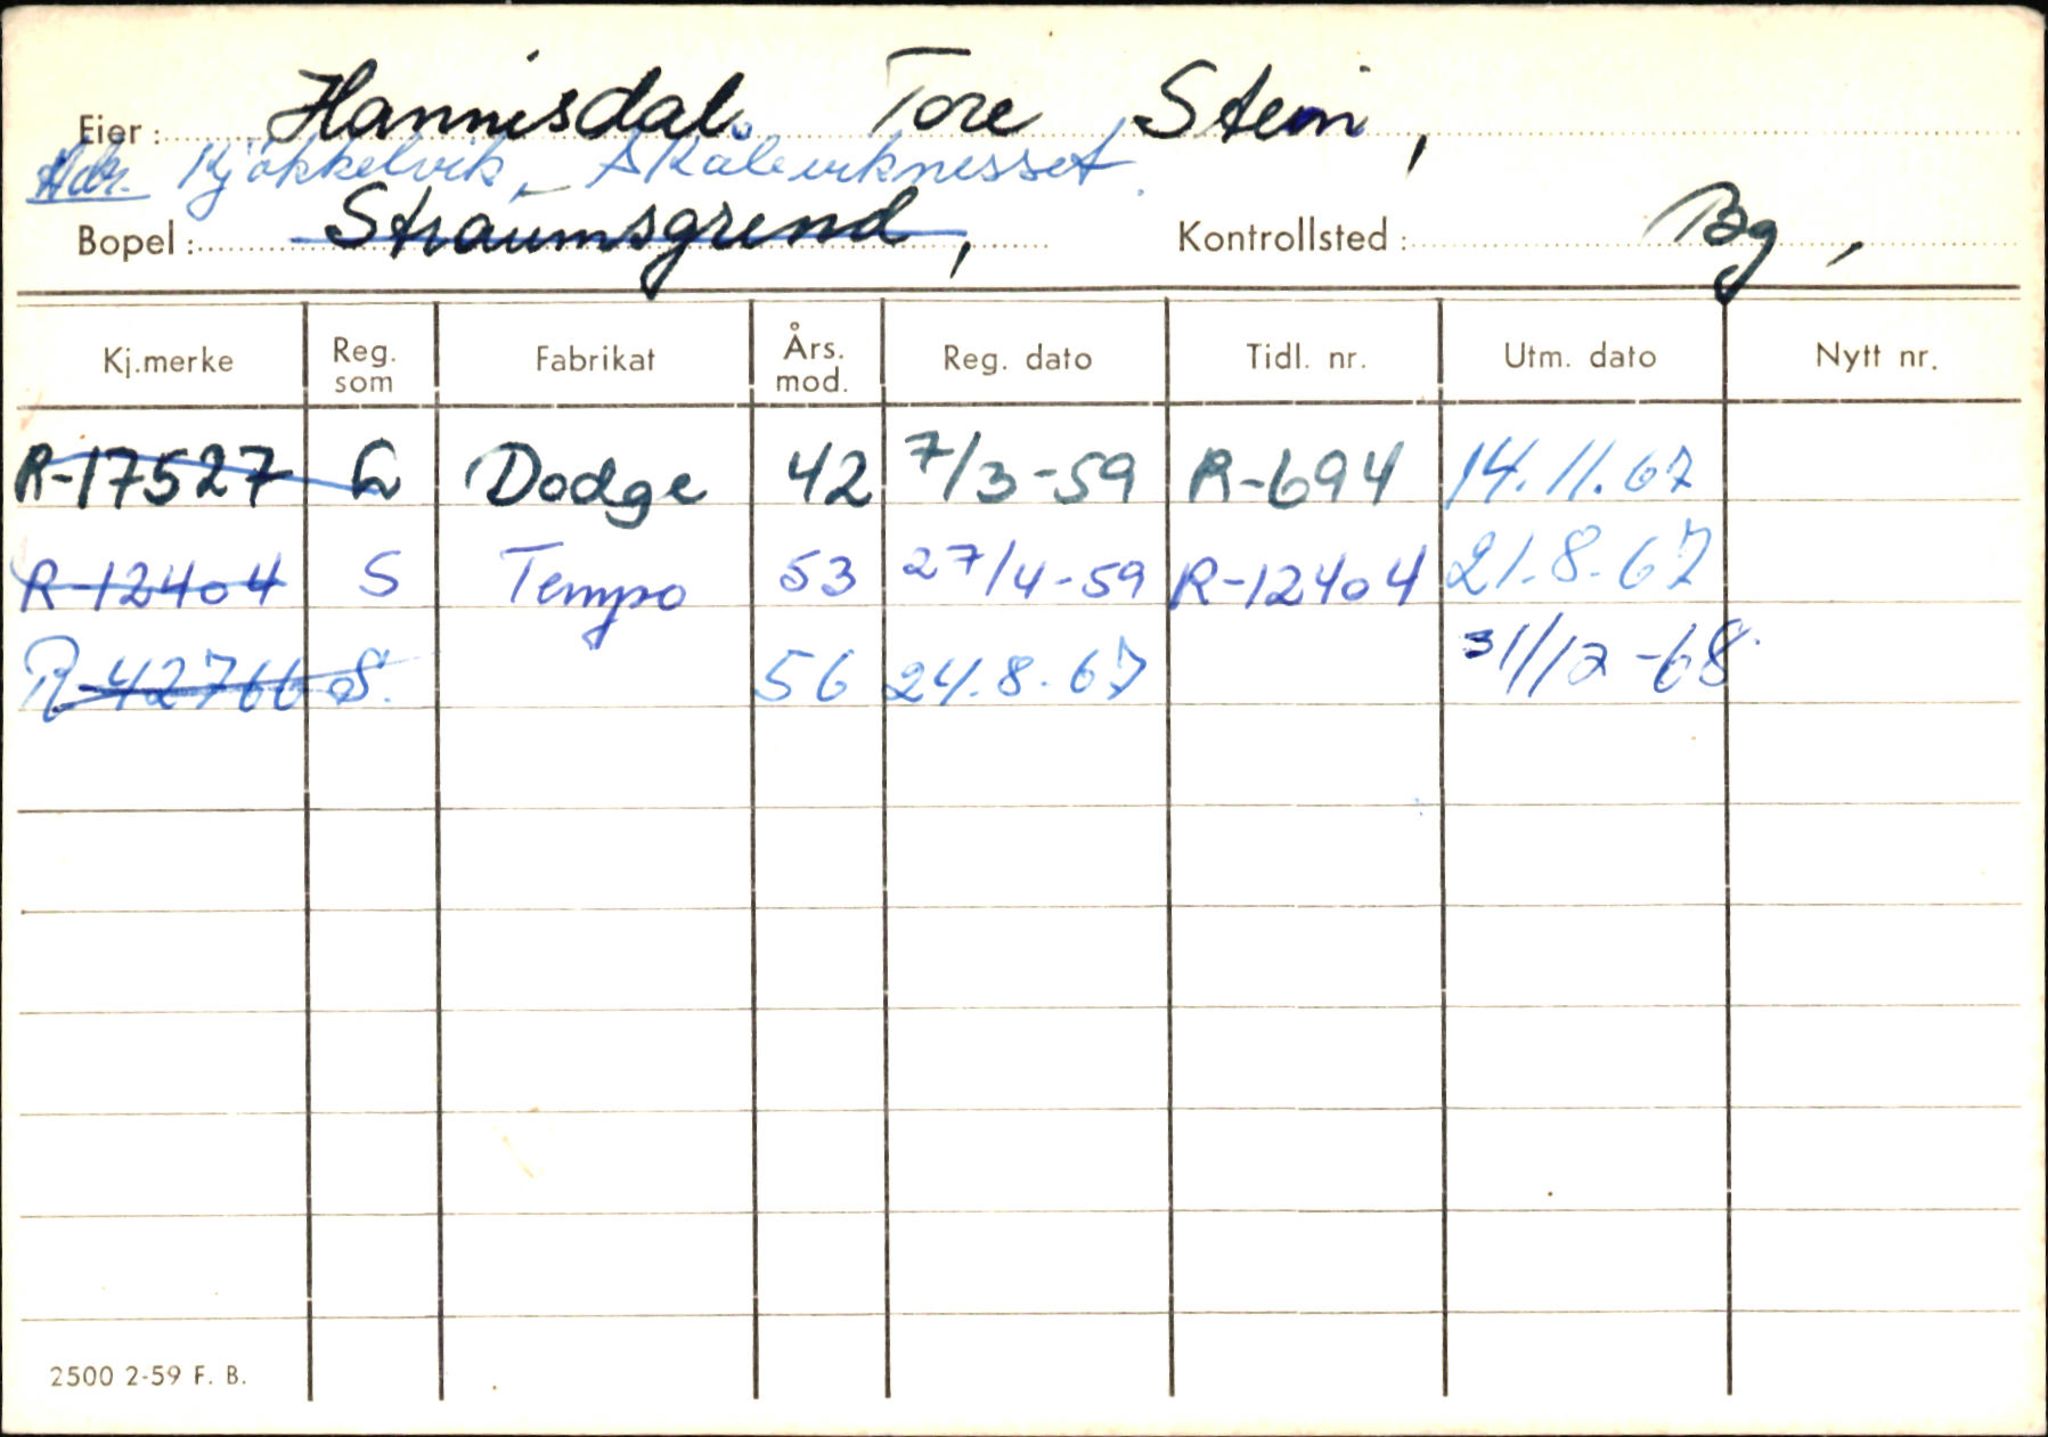 Eier: Hannisdal. Tore Stein,
Adr. Kjökkelvik, Skåleviknesset.
Bopel: Straumsgrend, Kontrollsted: Bg,
Kj.merke Reg. som Fabrikat Års. mod. Reg. dato Tidl. nr. Utm. dato Nytt nr.
R-17527 L Dodge 42 7/3-59 R-694 14.11.67
R-12404 S Tempo 53 27/4-59 R-12404 21.8.67
R-42766 S. 56 24.8.67 31/12-68
2500 2-59 F. B.